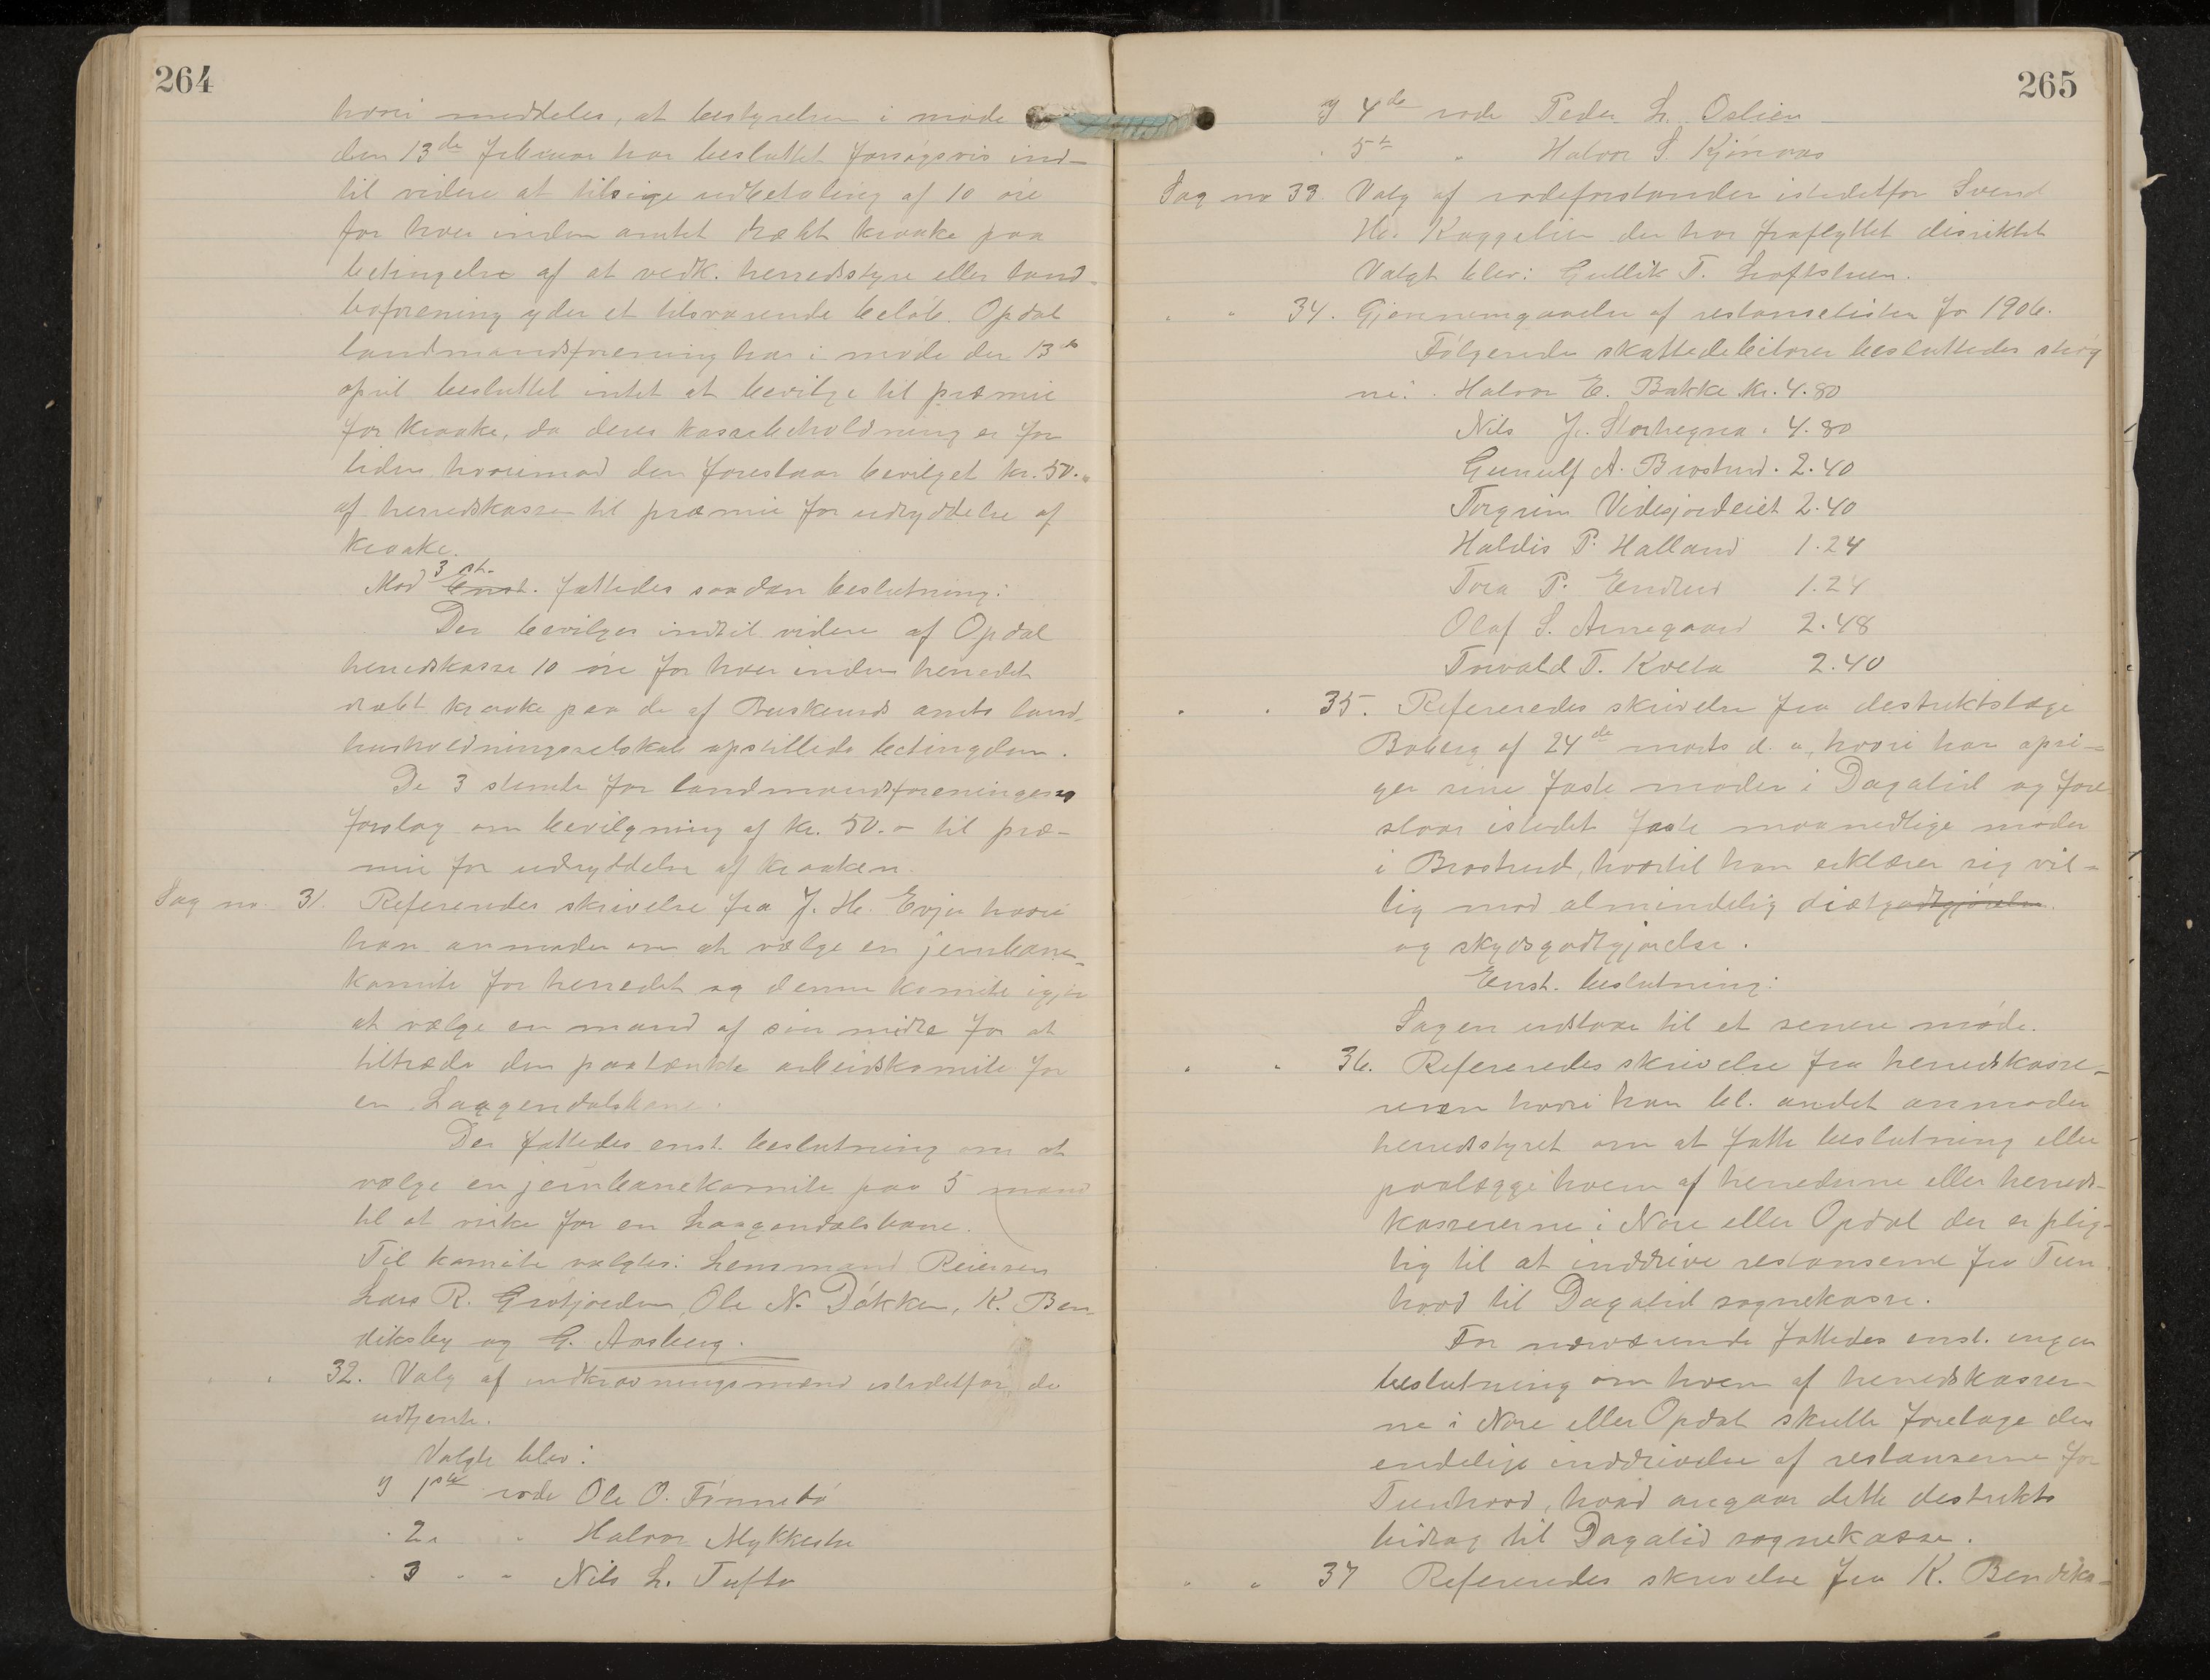 264
hvori meddeles, at bestyrelsen i møde
den 13de februar har besluttet forsøgsvis ind-
til videre at tilsige udbetaling af 10 øre
for hver inden amtet dræbt kraake paa
betingelse af at vedk. herredsstyre eller land-
boforening yder et tilsvarende beløb. Opdal
landmandsforening har i møde den 13de
april besluttet intet at bevilge til præmie
for kraake, da deres kassebeholdning er for
liden hvorimod den foreslaar bevilget kr. 50.-
af herredskassen til præmie for udryddelse af
kraake.
Mod 3 st. Enst. fattedes saadan beslutning:
Der bevilges indtil videre af Opdal
herredskasse 10 øre for hver inden herredet
dræbt kraake paa de af Buskeruds amts land-
husholdningsselskab opstillede betingelser.
De 3 stemte for landmandsforeningens
forslag om bevilgning af kr. 50.- til præ-
mie for udryddelse af kraaken.
Sag no. 31. Refereredes skrivelse fra J. H. Evju hvori
han anmoder om at vælge en jernbane-
komite for herredet og denne komite igjen
at vælge en mand af sin midte for at
tiltræde den paatænkte arbeidskomite for
en Laagendalsbane.
Der fattedes enst. beslutning om at
vælge en jernbanekomite paa 5 mand
til at virke for en Laagendalsbane.
Til komite valgtes: Lensmand Reiersen
Lars R. Grøtjorden, Ole N. Dokken, K. Ben-
diksby og G. Aasberg.
" " 32. Valg af indkrævningsmænd istedetfor de
udtjente.
Valgte blev:
I 1ste rode Ole O. Tinnebø
" 2. " Halvor Mykkestu
" 3 " " Nils L. Tufto
265
I 4de rode Peder L. Oslien
" 5te " Halvor S. Kjønaas
Sag no 33. Valg af rodeforstander istedetfor Svend
H. Kaggelien der har fraflyttet disriktet
Valgt blev: Gullik T. Loftsteen.
" " 34. Gjennemgaaelse af restanselisten for 1906.
Følgende skattedebitorer besluttedes strøg
ne: Halvor E. Bakke kr. 4.80
Nils J. Storhegna " 4.80
Gunulf A. Brostrud. 2.40
Torgrim Vidsjordeiet 2.40
Haldis P. Halland 1.24
Tora P. Endrud 1.24
Olaf S. Arnegaard 2.48
Torvald T. Kvelta 2.40
" " 35. Refereredes skrivelse fra destriktslæge
Boberg af 24de marts d. a, hvori han opsi-
ger sine faste møder i Dagalid og fore
slaar istedet faste maanedlige møder
i Brostrud, hvortil han erklærer sig vil-
lig mod almindelig diætgodtgjørelse.
og skydsgodtgjørelse.
Enst. beslutning:
Sagen udstaar til et senere møde.
" " 36. Refereredes skrivelse fra herredskasse-
reren hvori han bl. andet anmoder
herredsstyret om at fatte beslutning eller
paalægge hvem af herrederne eller herreds-
kassererne i Nore eller Opdal der er plig-
tig til at inddrive restanserne fra Tun
hovd til Dagalid sognekasse.
For nærværende fattedes enst. ingen
beslutning om hvem af herredskassrer-
ne i Nore eller Opdal skulle foretage den
endelige inddrivelse af restanserne for
Tunhovd, hvad angaar dette destrikts
bidrag til Dagalid sognekasse.
" " 37 Refereredes skrivelse fra K. Bendiks-